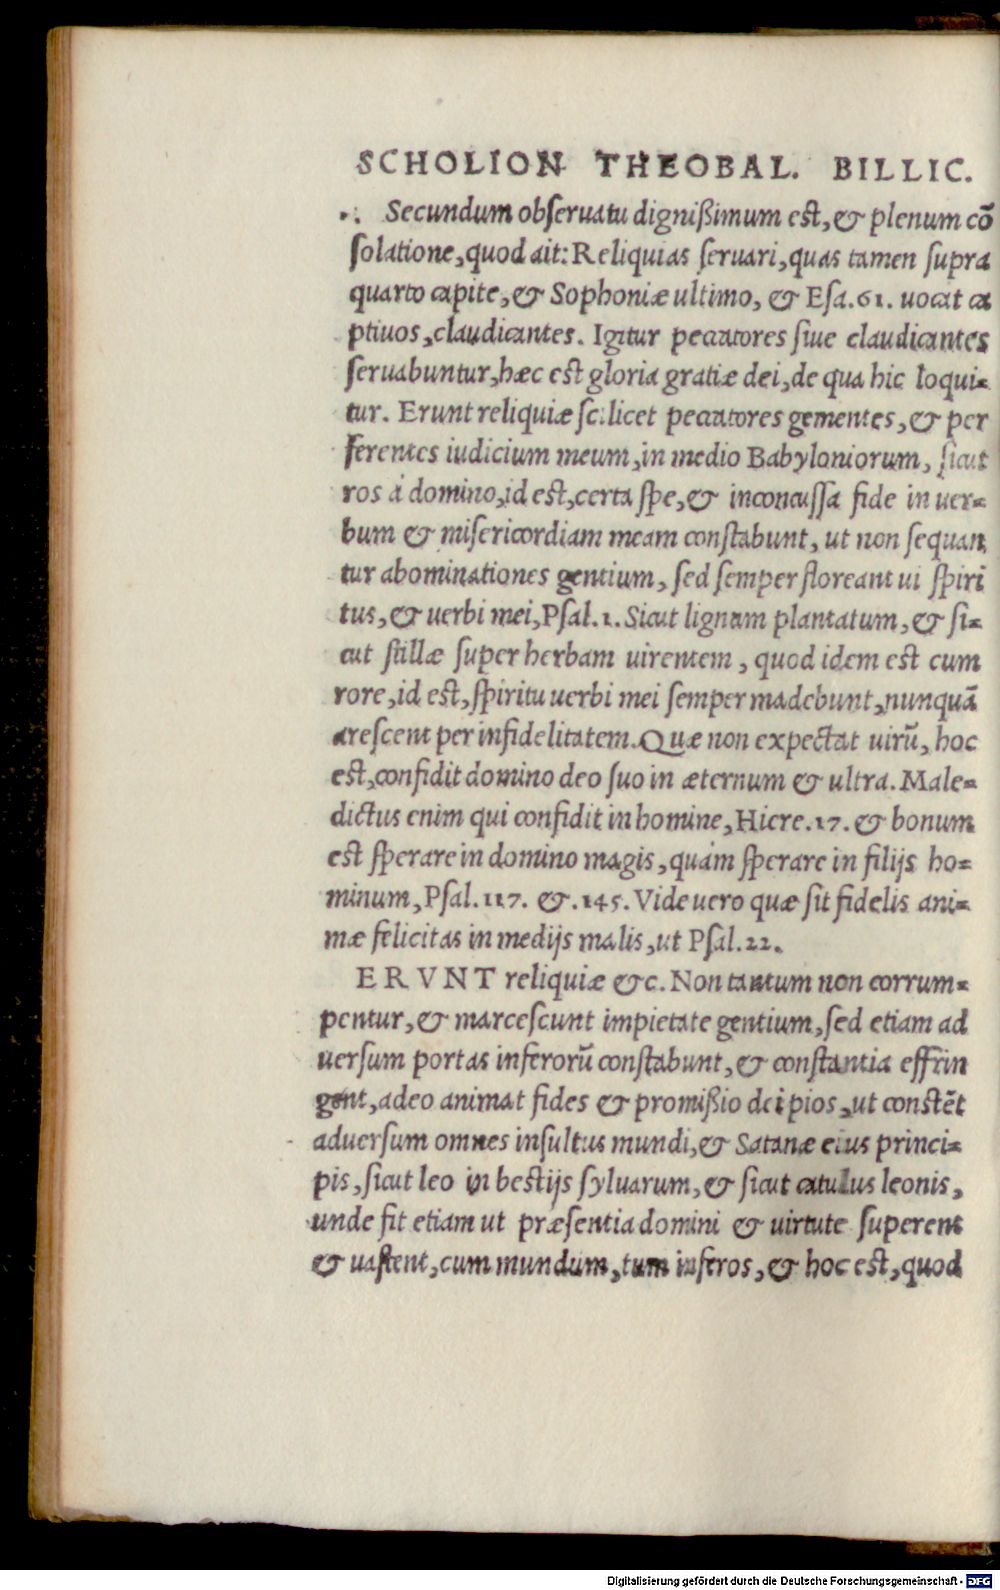 SCHOLION THEOBAL. BILLIC.
Secundum obſeruatu dignißimum est, & plenum cō
ſolatione, quod ait: Reliquias ſeruari, quas tamen ſupra
quarto capite, & Sophoniæ ultimo, & Eſa. 61. uocat ca
ptiuos, claudicantes. Igitur peccatores ſiue claudicantes
ſeruabuntur, hæc est gloria gratiæ dei, de qua hic loqui-
tur. Erunt reliquiæ ſcilicet peccatores gementes, & per
ferentes iudicium meum, in medio Babyloniorum, ſicut
ros à domino, id est, certa ſpe, & inconcuſſa fide in uer-
bum & miſericordiam meam conſtabunt, ut non ſequan
tur abominationes gentium, ſed ſemper floreant ui ſpiri
tus, & uerbi mei, Pſal. 1. Sicut lignum plantatum, & ſi-
cut ſtillæ ſuper herbam uirentem, quod idem est cum
rore, id est, ſpiritu uerbi mei ſemper madebunt, nunquā
areſcent per infidelitatem. Quæ non expectat uirū, hoc
est, confidit domino deo ſuo in æternum & ultra. Male-
dictus enim qui confidit in homine, Hiere. 17. & bonum
est ſperare in domino magis, quàm ſperare in filijs ho-
minum, Pſal. 117. &. 145. Vide uero quæ ſit fidelis ani-
mæ felicitas in medijs malis, ut Pſal. 22.
ERVNT reliquiæ &c. Non tantum non corrum-
pentur, & marceſcunt impietate gentium, ſed etiam ad
uerſum portas inferorū conſtabunt, & conſtantia effrin
gent, adeo animat fides & promißio dei pios, ut constēt
aduerſum omnes inſultus mundi, & Satanæ eius princi-
pis, ſicut leo in bestijs ſyluarum, & ſicut catulus leonis,
unde fit etiam ut præſentia domini & uirtute ſuperent
& uaſtent, cum mundum, tum inferos, & hoc est, quod
Digitalisierung gefördert durch die Deutsche Forschungsgemeinschaft - DFG